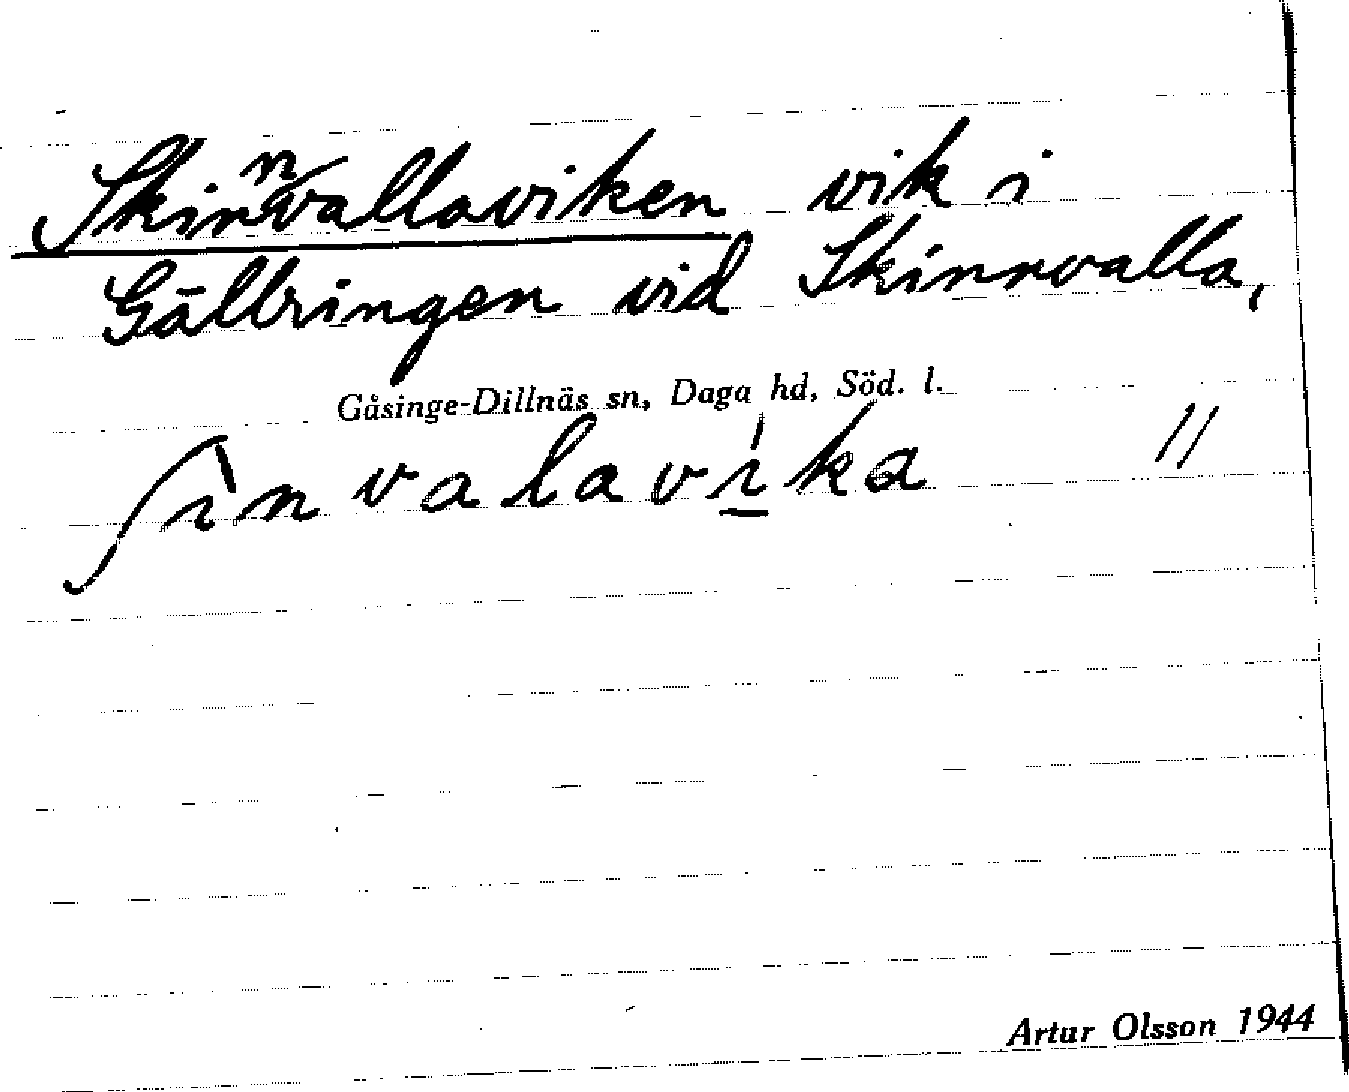 Skinnvallaviken vik i
Gälbringen vid Skinnvalla,
Gåsinge-Dillnäs sn, Daga hd, Söd. l.
ʃìnvalavi̱ˈka //
Artur Olsson 1944